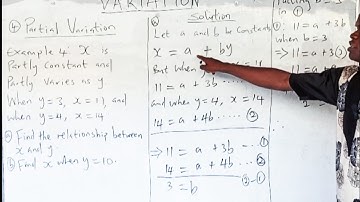 VARIATION
④ Partial Variation
Example 4 x is
Partly Constant and
Partly varies as y
When y = 3, x = 11, and
when y = 4, x = 14
ⓐ Find the relationship between
x and y.
ⓑ Find x when y = 10.
Solution
Let a and b be Constants
x = a + by
But when y
11 = a + 3b
and when y = 4, x = 14
14 = a + 4b ..... ②
⇒ 11 = a + 3b --- ①
14 = a + 4b .... ②
3 = b ②-①
b = 3
11 = a + 3
when b = 3
⇒ 11 = a + 3(
11 = a +
11 -